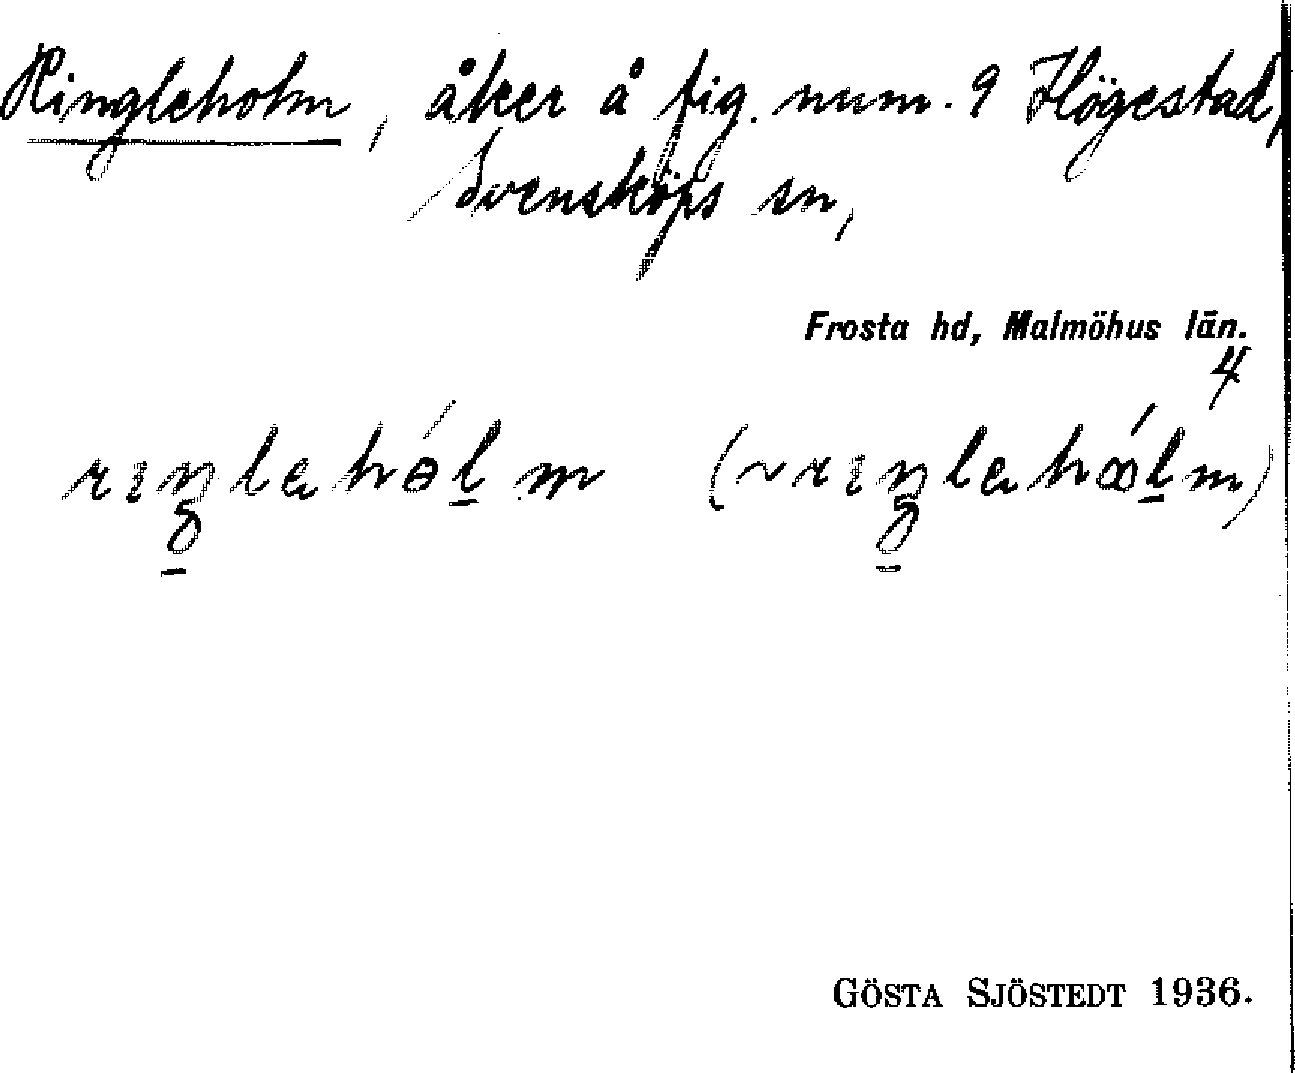 Ringleholm, åker å fig. num. 9 Högestad,
Svensköps sn,
Frosta hd, Malmöhus län.
4
GÖSTA SJÖSTEDT 1936.